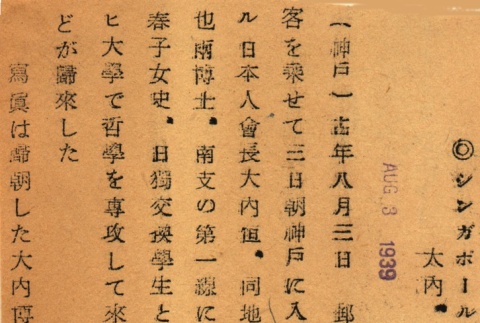 ◎シンガポール
大內、
AUG 3 1939
(神戶)十四年八月三日 郵
客を乘せて三日朝神戶に入
ル日本人會長大內恒、同地
也兩博士、南支の第一線に
春子女史、日獨交換學生と
ヒ大學で哲學を專攻して來
どが歸來した
寫眞は歸朝した大內博